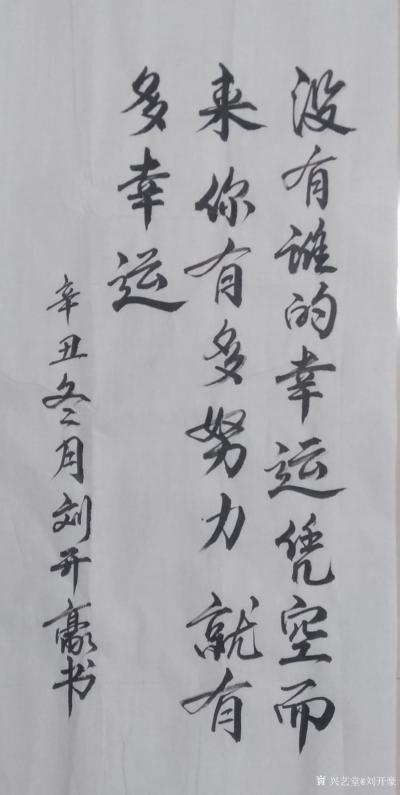 没有谁的幸运凭空而
来你有多努力就有
多幸运
辛丑冬月刘开豪书
兴艺堂@刘开豪